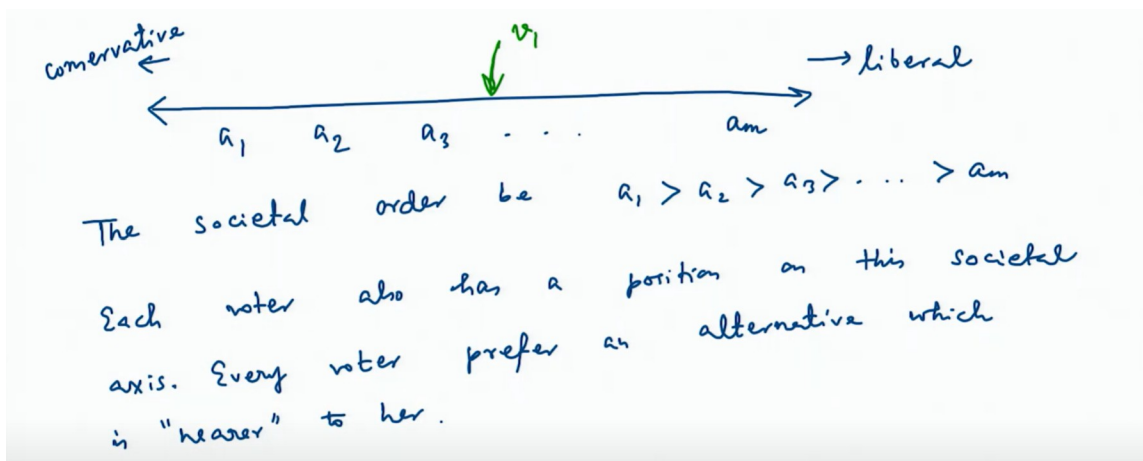 conservative
←
v₁
→ liberal
a₁ a₂ a₃ . . . aₘ
The societal order be a₁ > a₂ > a₃ > . . . > aₘ
Each voter also has a position on this societal
axis. Every voter prefer an alternative which
is "nearer" to her.